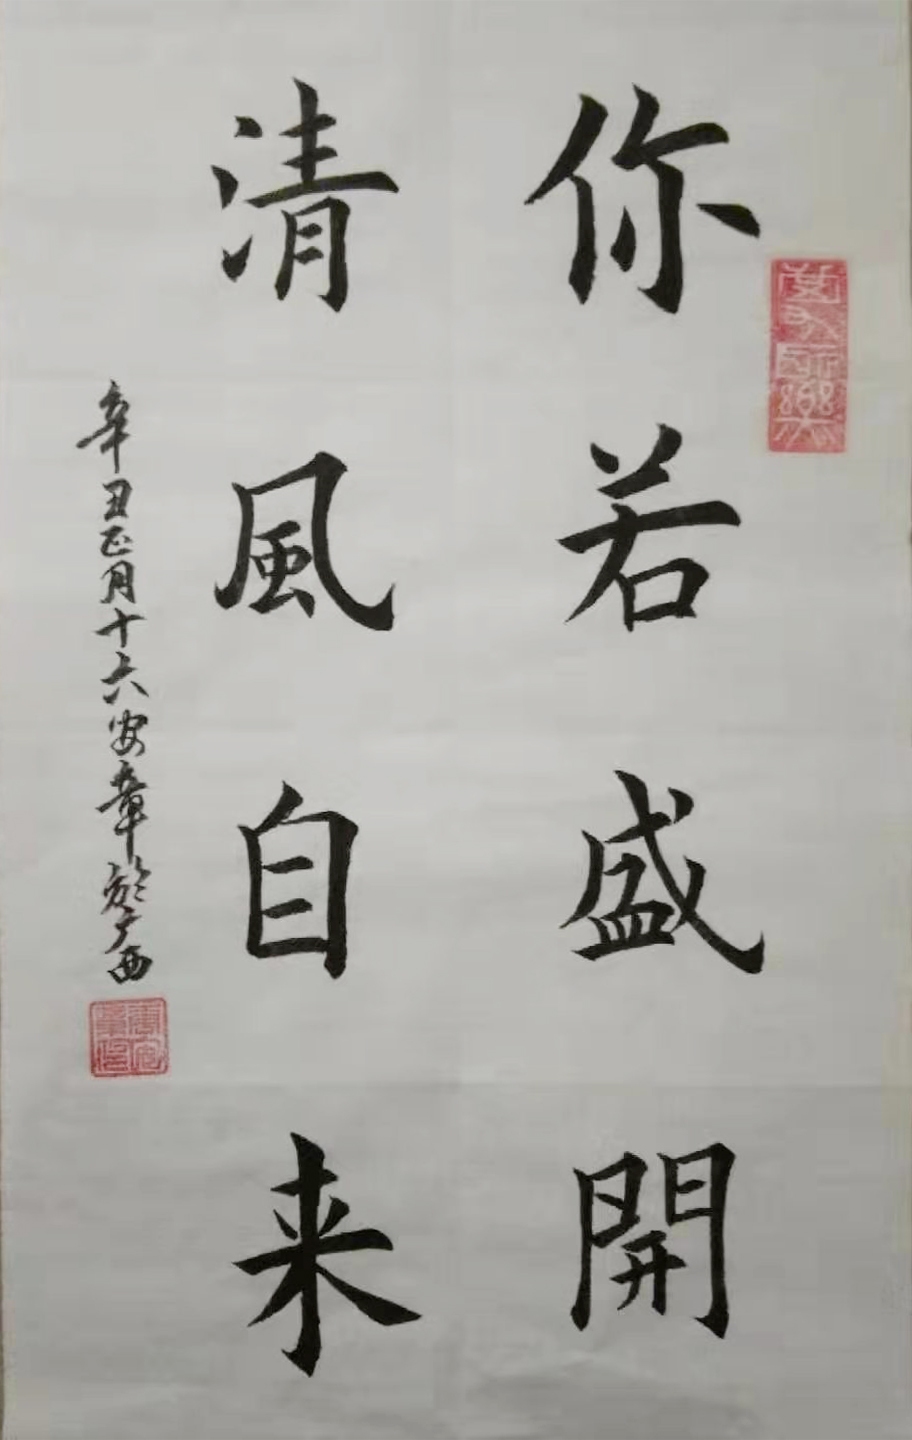 你若盛開
清風自来
辛丑正月十六安章於广西